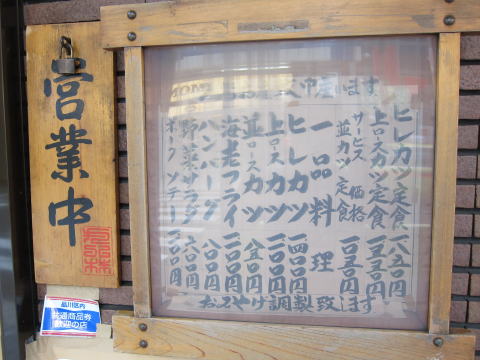 営業中
ヒレカツ定食 一八五〇円
上ロースカツ定食 一五五〇円
サービス価格
並カツ定食 一〇五〇円
一品料理
ヒレカツ 一四〇〇円
上ロースカツ 一一〇〇円
並ロースカツ 八五〇円
海老フライ 一一〇〇円
ハンバーグ 八〇〇円
野菜サラダ 六〇〇円
ポークソテー
おみやげ調製致します
品川区内
共通商品券
歓迎の店